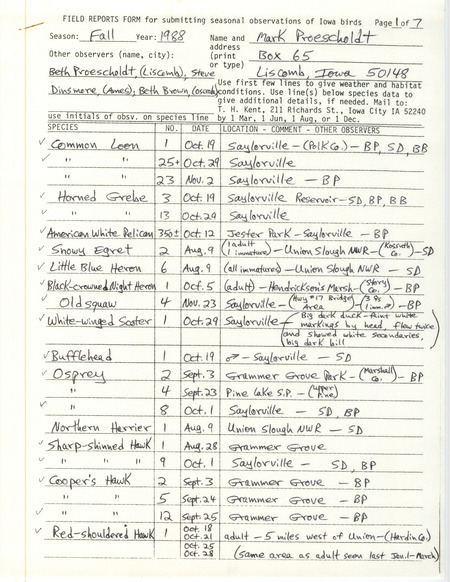 FIELD REPORTS FORM for submitting seasonal observations of Iowa birds Page 1 of 7
Season: Fall Year: 1988 Name and address (print or type) Mark Proescholdt
Other observers (name, city): Box 65
Beth Proescholdt, (Liscomb), Steve Liscomb, Iowa 50148
Dinsmore, (Ames), Beth Brown, Use first few lines to give weather and habitat
conditions. Use line(s) below species data to
give additional details, if needed. Mail to:
T. H. Kent, 211 Richards St., Iowa City IA 52240
use initials of obsv. on species line by 1 Mar, 1 Jun, 1 Aug, or 1 Dec.
SPECIES NO. DATE LOCATION - COMMENT - OTHER OBSERVERS
✓ Common Loon 1 Oct. 19 Saylorville - (Polk Co.) - BP, SD, BB
✓ " " 25+ Oct. 29 Saylorville
" " 23 Nov. 2 Saylorville - BP
✓ Horned Grebe 3 Oct. 19 Saylorville Reservoir - SD, BP, BB
" " 13 Oct. 29 Saylorville
✓ American White Pelican 350± Oct. 12 Jester Park - Saylorville - BP
✓ Snowy Egret 2 Aug. 9 (1 adult 1 immature) - Union Slough NWR - (Kossuth Co.) - SD
✓ Little Blue Heron 6 Aug. 9 (all immatures) - Union Slough NWR - SD
✓ Black-crowned Night Heron 1 Oct. 5 (adult) - Hendrickson's Marsh - (Story Co.) - BP
✓ Oldsquaw 4 Nov. 23 Saylorville - (Hwy #17 Bridge Area) - (3 ♀s 1 imm. ♂) - BP
✓ White-winged Scoter 1 Oct. 29 Saylorville - Big dark duck - faint white
markings by head, flew twice
and showed white secondaries,
big dark bill
✓ Bufflehead 1 Oct. 19 ♂ - Saylorville - SD
✓ Osprey 2 Sept. 3 Grammer Grove Park - (Marshall Co.) - BP
✓ " 4 Sept. 23 Pine Lake S.P. - (upper Pine)
✓ " 8 Oct. 1 Saylorville - SD, BP
Northern Harrier 1 Aug. 9 Union Slough NWR - SD
✓ Sharp-shinned Hawk 1 Aug. 28 Grammer Grove
✓ " " " 9 Oct. 1 Saylorville - SD, BP
✓ Cooper's Hawk 2 Sept. 3 Grammer Grove - BP
" " 5 Sept. 24 Grammer Grove - BP
✓ " " 12 Sept. 25 Grammer Grove - BP
✓ Red-shouldered Hawk 1 Oct. 18
Oct. 21 adult - 5 miles west of Union - (Hardin Co.)
Oct. 25
Oct. 28 (same area as adult seen last Jan.1-March)